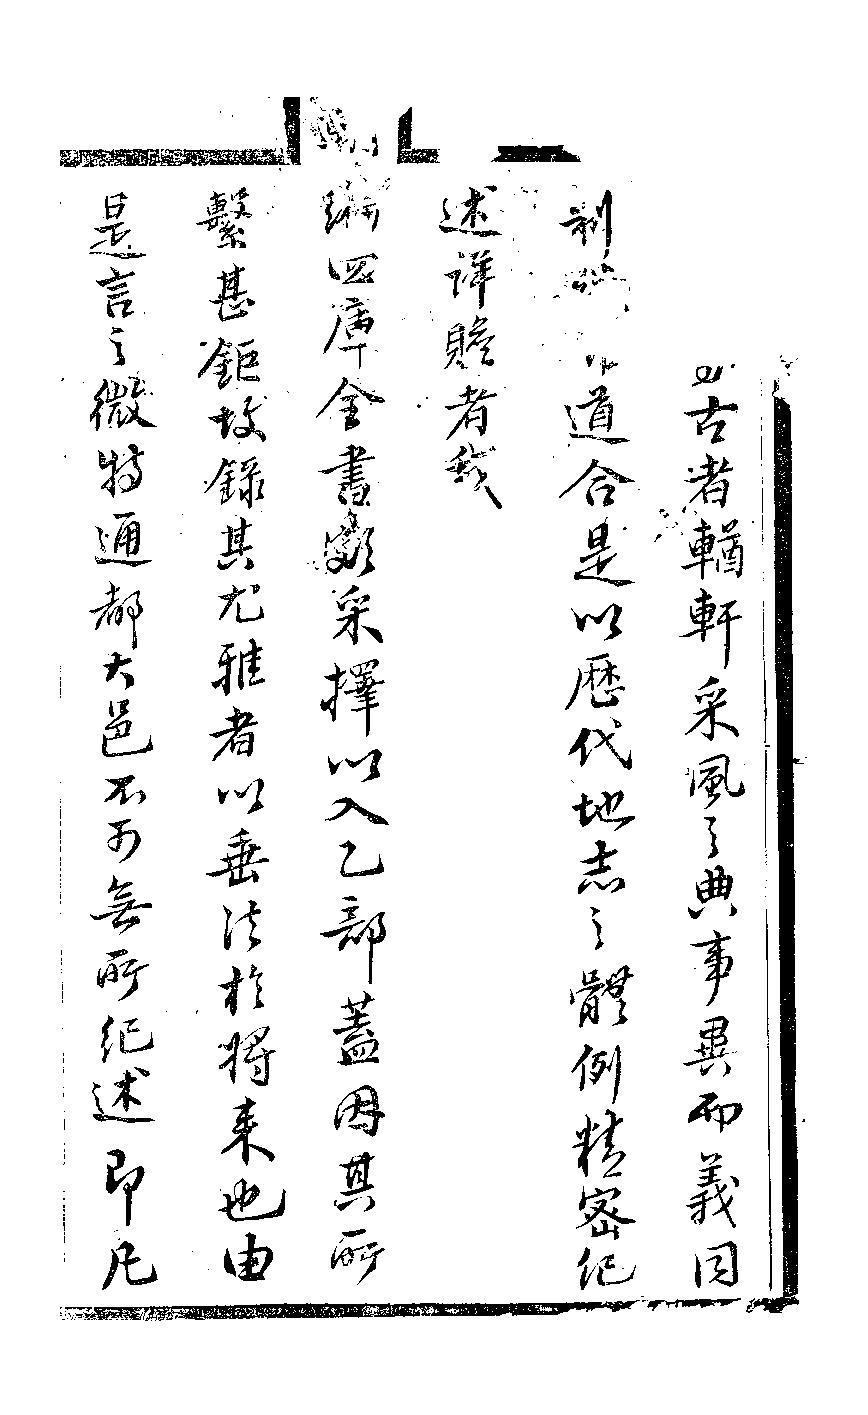 古者輶軒采風之典事異而義同
制 道合是以歷代地志之體例精密紀
述詳贍者我
編四庫全書 采擇以入乙部蓋因其所
繫甚鉅故錄其尤雅者以垂法於將来也由
是言之微特通都大邑不可無所紀述即凡